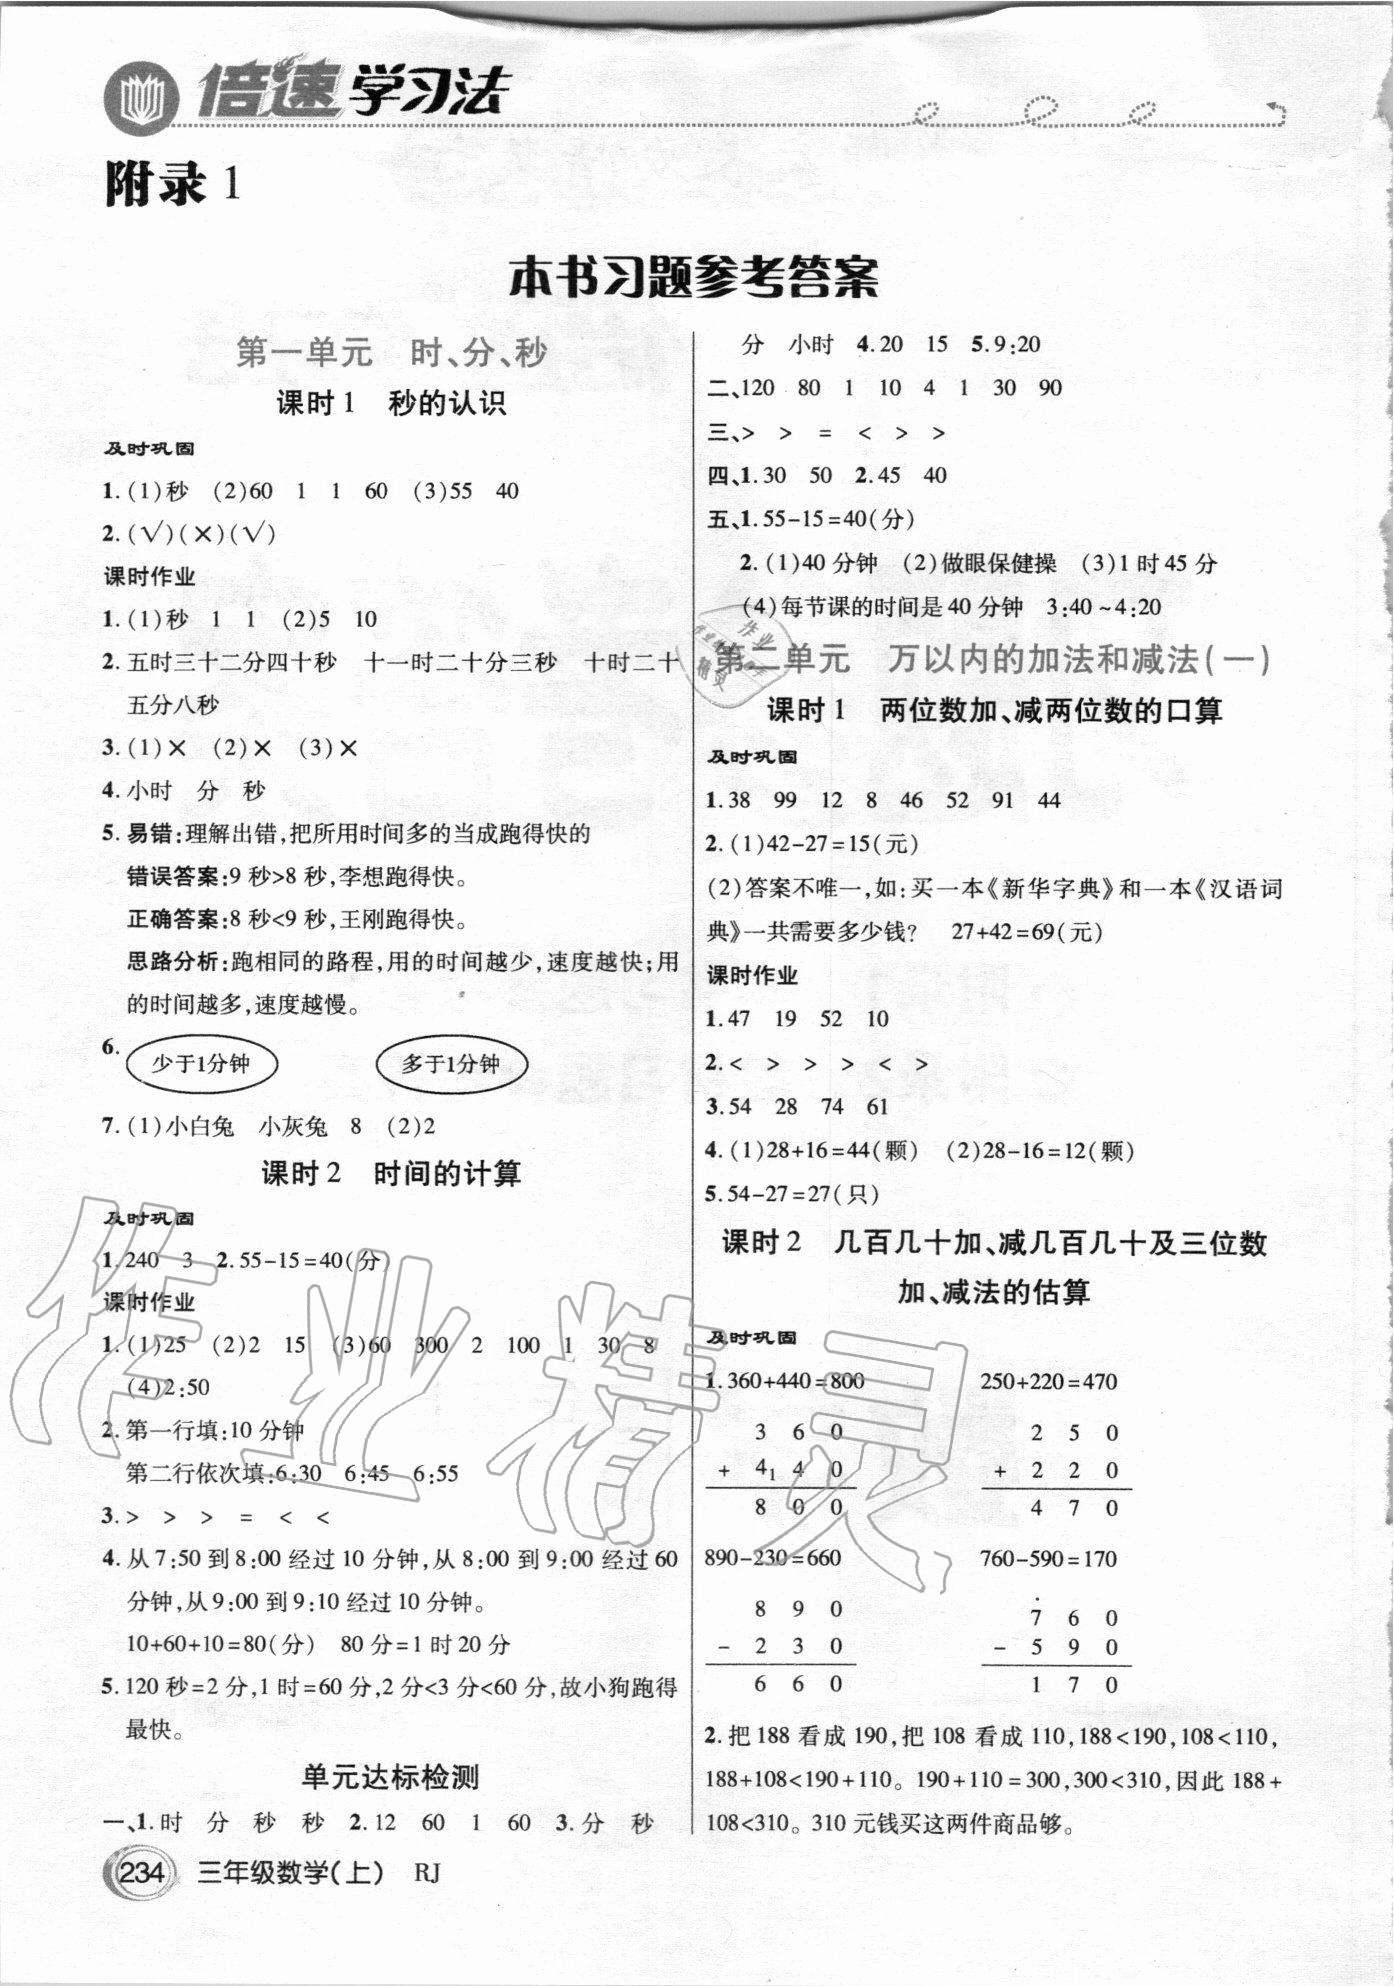 倍速学习法
附录1
本书习题参考答案
第一单元 时、分、秒
课时1 秒的认识
及时巩固
1.(1)秒 (2)60 1 1 60 (3)55 40
2.(√)(×)(√)
课时作业
1.(1)秒 1 1 (2)5 10
2.五时三十二分四十秒 十一时二十分三秒 十时二十
五分八秒
3.(1)× (2)× (3)×
4.小时 分 秒
5.易错:理解出错,把所用时间多的当成跑得快的
错误答案:9秒>8秒,李想跑得快。
正确答案:8秒<9秒,王刚跑得快。
思路分析:跑相同的路程,用的时间越少,速度越快;用
的时间越多,速度越慢。
6. 少于1分钟 多于1分钟
7.(1)小白兔 小灰兔 8 (2)2
课时2 时间的计算
及时巩固
1.240 3 2.55-15=40(分)
课时作业
1.(1)25 (2)2 15 (3)60 300 2 100 1 30 8
(4)2:50
2.第一行填:10分钟
第二行依次填:6:30 6:45 6:55
3.> > > = < <
4.从7:50到8:00经过10分钟,从8:00到9:00经过60
分钟,从9:00到9:10经过10分钟。
10+60+10=80(分) 80分=1时20分
5.120秒=2分,1时=60分,2分<3分<60分,故小狗跑得
最快。
单元达标检测
一、1.时 分 秒 秒 2.12 60 1 60 3.分 秒
分 小时 4.20 15 5.9:20
二、120 80 1 10 4 1 30 90
三、> > = < > >
四、1.30 50 2.45 40
五、1.55-15=40(分)
2.(1)40分钟 (2)做眼保健操 (3)1时45分
(4)每节课的时间是40分钟 3:40~4:20
第二单元 万以内的加法和减法(一)
课时1 两位数加、减两位数的口算
及时巩固
1.38 99 12 8 46 52 91 44
2.(1)42-27=15(元)
(2)答案不唯一,如:买一本《新华字典》和一本《汉语词
典》一共需要多少钱? 27+42=69(元)
课时作业
1.47 19 52 10
2.< > > > < >
3.54 28 74 61
4.(1)28+16=44(颗) (2)28-16=12(颗)
5.54-27=27(只)
课时2 几百几十加、减几百几十及三位数
加、减法的估算
及时巩固
1.360+440=800 250+220=470
3 6 0 2 5 0
+ 4₁ 4 0 + 2 2 0
8 0 0 4 7 0
890-230=660 760-590=170
8 9 0 7̇ 6 0
- 2 3 0 - 5 9 0
6 6 0 1 7 0
2.把188看成190,把108看成110,188<190,108<110,
188+108<190+110。190+110=300,300<310,因此188+
108<310。310元钱买这两件商品够。
234 三年级数学(上) RJ
作业精灵